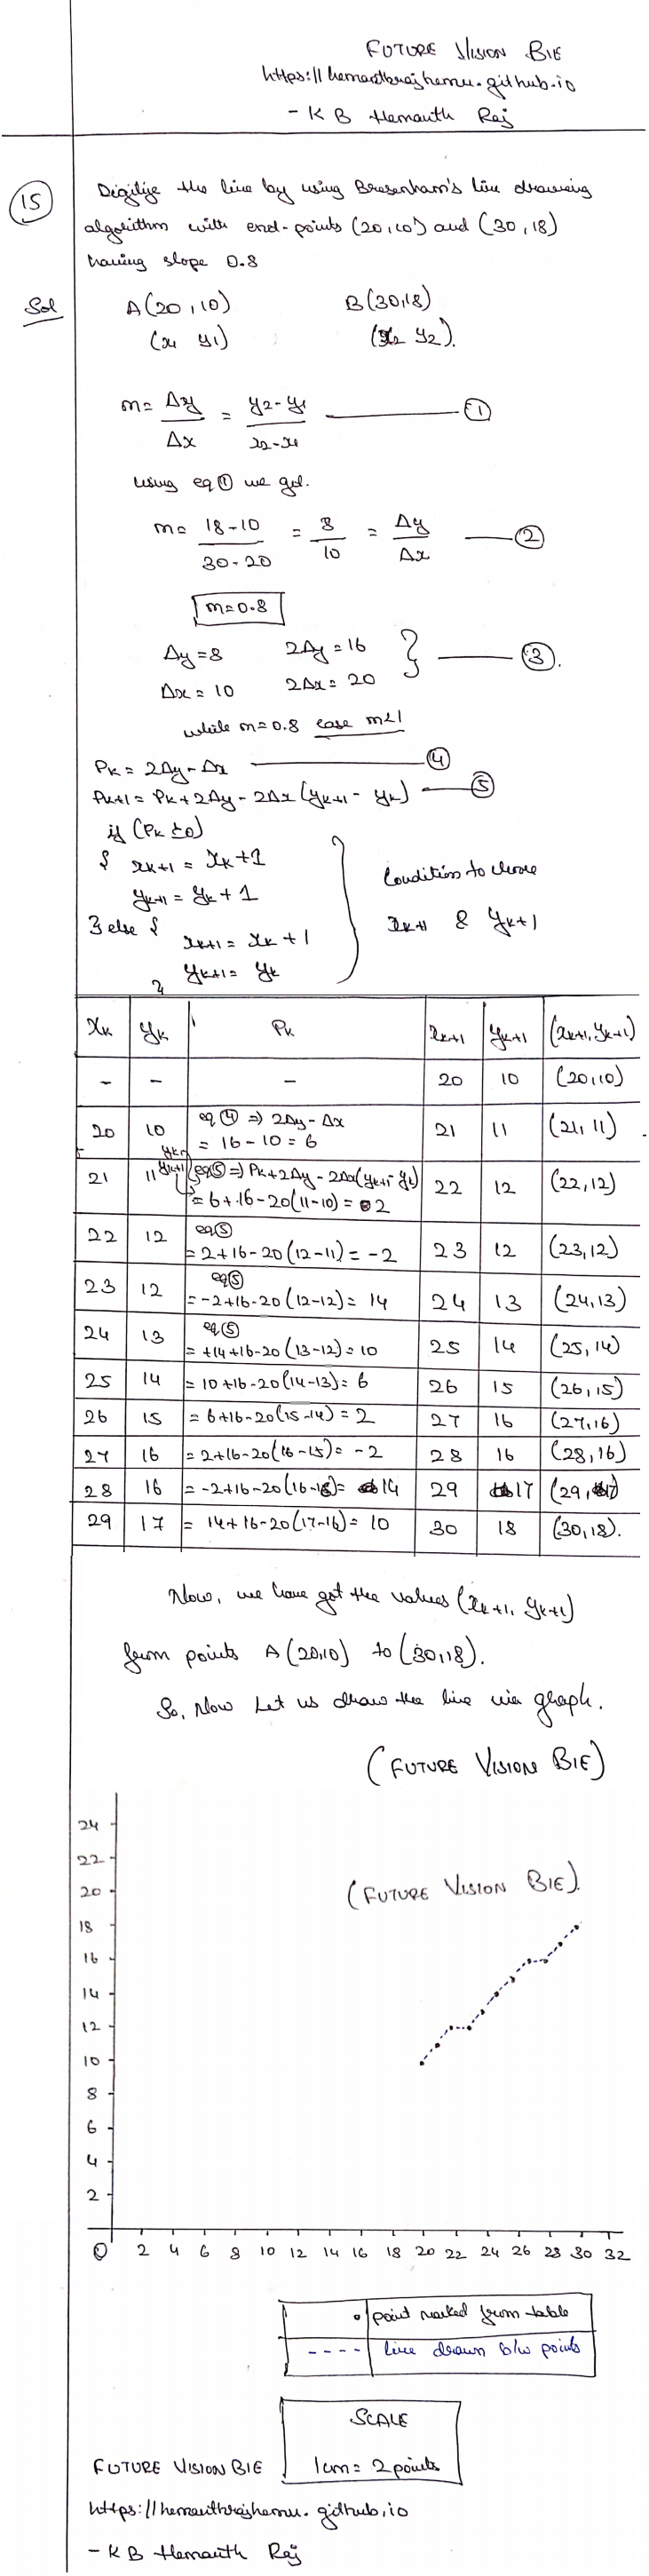 FUTURE VISION BIE
https://hemanthrajhemu.github.io
- K B Hemanth Raj
15
Digitize the line by using Bresenham's line drawing
algorithm with end-points (20,10) and (30,18)
having slope 0.8
Sol
A(20,10) B(30,18)
(x1 y1) (x2 y2).
m= Δy/Δx = y2-y1/x2-x1 ——— ①
using eq① we get.
m= 18-10/30-20 = 8/10 = Δy/Δx ——— ②
m=0.8
Δy=8 2Δy=16
Δx=10 2Δx=20 } ——— ③.
while m=0.8 case m<1
Pk = 2Δy-Δx ——— ④
Pk+1 = Pk+2Δy-2Δx(yk+1 - yk) ——— ⑤
if (Pk ≥0)
{ xk+1 = xk+1
yk+1 = yk+1
} else {
xk+1 = xk+1
yk+1 = yk
}
Condition to choose
xk+1 & yk+1
xk yk Pk xk+1 yk+1 (xk+1, yk+1)
- - - 20 10 (20,10)
20 10 eq④ ⇒ 2Δy-Δx = 16-10=6 21 11 (21,11)
21 11 eq⑤ ⇒ Pk+2Δy-2Δx(yk+1-yk) = 6+16-20(11-10) = 2 22 12 (22,12)
22 12 eq⑤ = 2+16-20(12-11) = -2 23 12 (23,12)
23 12 eq⑤ = -2+16-20(12-12) = 14 24 13 (24,13)
24 13 eq⑤ = +14+16-20(13-12) = 10 25 14 (25,14)
25 14 = 10+16-20(14-13) = 6 26 15 (26,15)
26 15 = 6+16-20(15-14) = 2 27 16 (27,16)
27 16 = 2+16-20(16-15) = -2 28 16 (28,16)
28 16 = -2+16-20(16-16) = 14 29 17 (29,17)
29 17 = 14+16-20(17-16) = 10 30 18 (30,18).
Now, we have got the values (xk+1, yk+1)
from points A(20,10) to (30,18).
So, Now Let us draw the line via graph.
(FUTURE VISION BIE)
(FUTURE VISION BIE).
24
22
20
18
16
14
12
10
8
6
4
2
0 2 4 6 8 10 12 14 16 18 20 22 24 26 28 30 32
point marked from table
---- line drawn b/w points
SCALE
1cm = 2 points
FUTURE VISION BIE
https://hemanthrajhemu.github.io
- K B Hemanth Raj